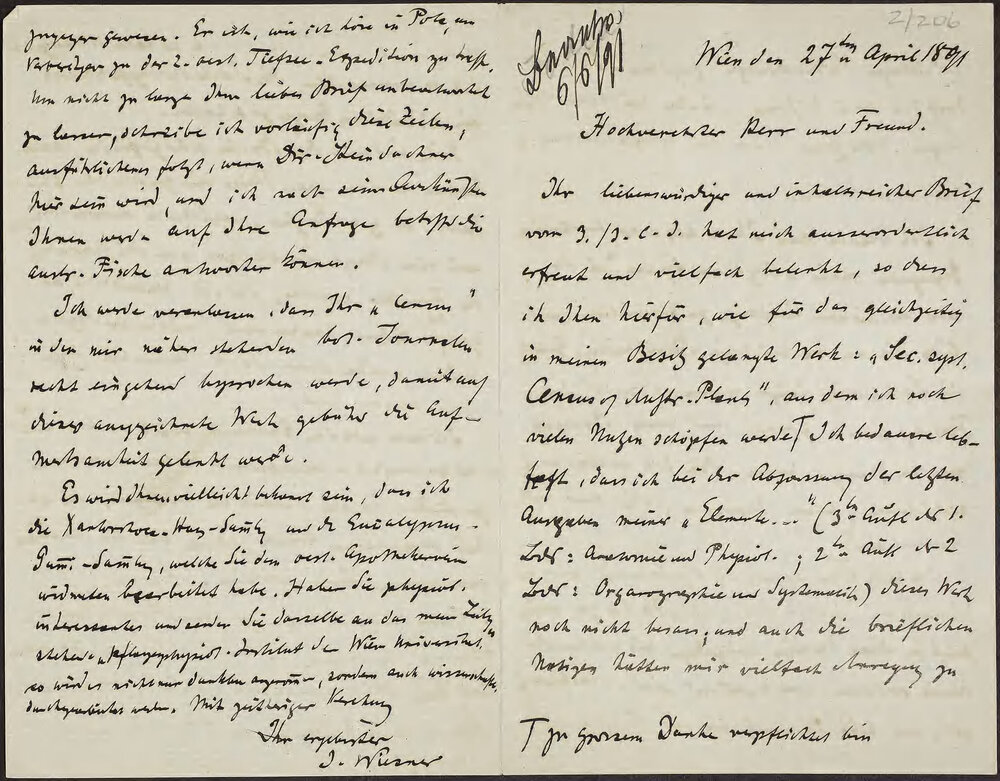 2/206
6/6/91
Wien den 27ten April 1891
Hochverehrter Herr und Freund.
Ihr liebenswürdiger und inhaltsreicher Brief
vom 3./3. c. J. hat mich ausserordentlich
erfreut und vielfach belehrt, so dass
ich Ihnen hierfür, wie für das gleichzeitig
in meinen Besitz gelangte Werk: „Sec. syst.
Census of Austr. Plants", aus dem ich noch
vielen Nutzen schöpfen werde T Ich bedauere leb-
haft, dass ich bei der Abfassung der letzten
Ausgaben meiner „Elemente..." (3te Aufl. des 1.
Bds: Anatomie und Physiol.; 2te Aufl. des 2
Bds: Organographie und Systematik) dieses Werk
noch nicht besass; und auch die brieflichen
Notizen hätten mir vielfach Anregung zu
T zu grossem Danke verpflichtet bin
gewesen. Er ist, wie ich höre in Pola, um
Vorbereitungen zu der 2. oest. Tiefsee-Expedition zu treffen.
Um nicht zu lange Ihren lieben Brief unbeantwortet
zu lassen, schreibe ich vorläufig diese Zeilen,
ausführlicheres folgt, wenn Dir. Steindachner
hier sein wird, und ich nach seinen Auskünften
Ihnen werde auf Ihre Anfrage betreffs die
austr. Fische antworten können.
Ich werde veranlassen, dass Ihr „Census"
in den mir näher stehenden bot. Journalen
recht eingehend besprochen werde, damit auf
dieses ausgezeichnete Werk gebührend die Auf-
merksamkeit gelenkt werde.
Es wird Ihnen vielleicht bekannt sein, dass ich
die Xanthorrhoea-Harz-Samlg und die Eucalyptus-
Gummi-Samlg, welche Sie dem oest. Apothekerverein
widmeten bearbeitet habe. Haben Sie physiol.
interessantes und senden Sie dasselbe an das mein Leitung
stehende pflanzenphysiol. Institut der Wien Universität,
so wird es nicht nur dankbar angenommen, sondern auch wissenschaftl.
durchgearbeitet werden. Mit
Ihr ergebenster
J. Wiesner